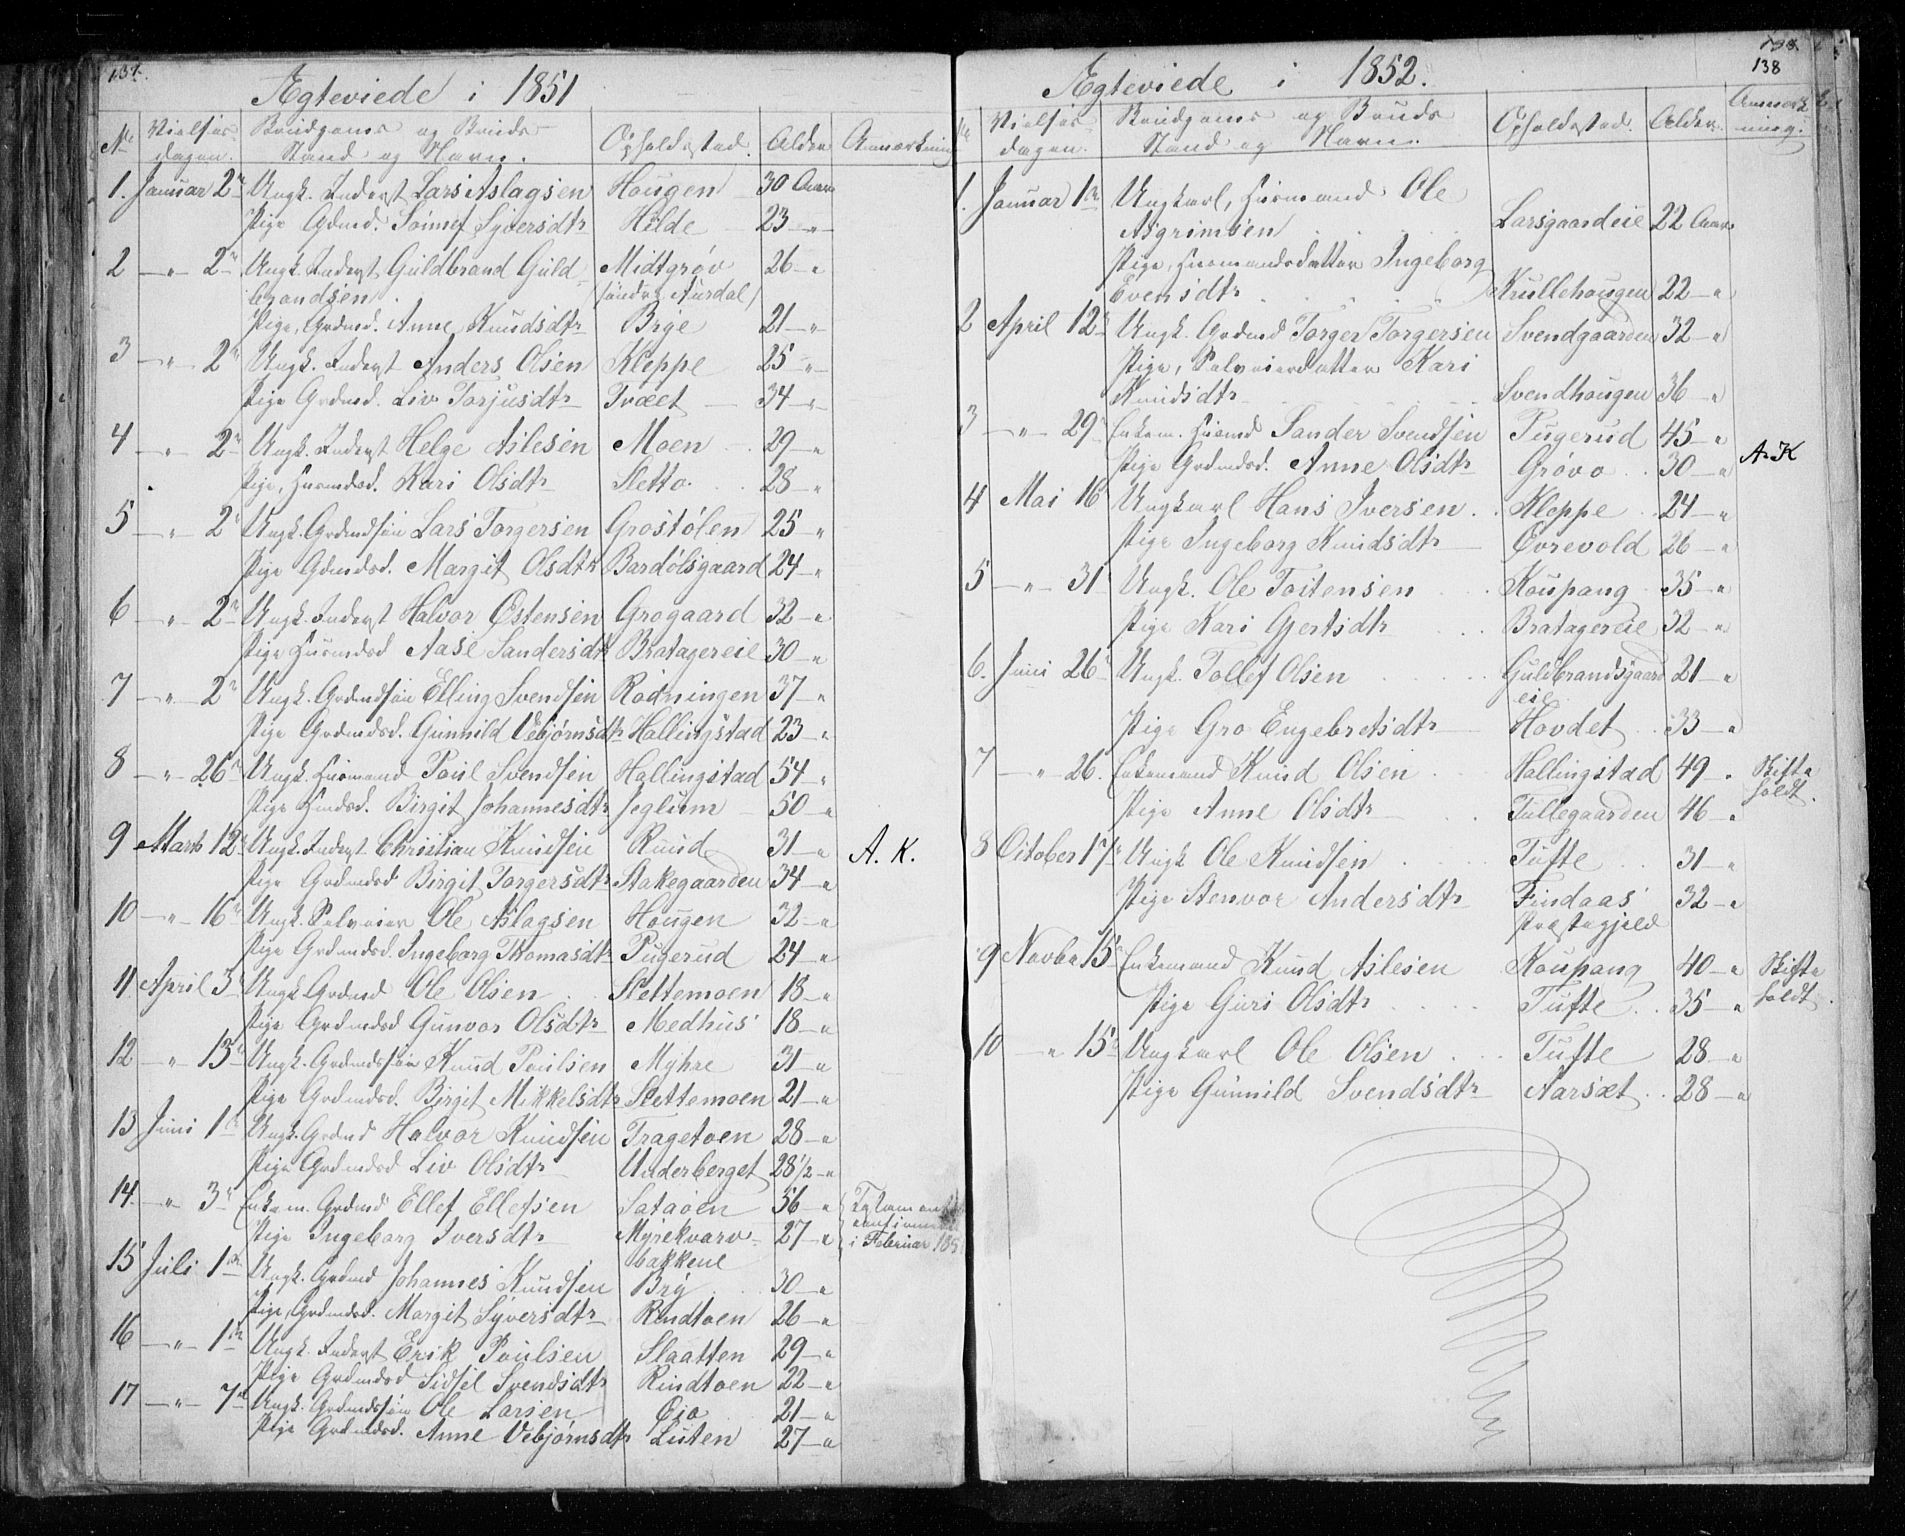 137.
Ægteviede i 1851
No Vielses- Brudgoms og Bruds Opholdsted. Alder Anmærkning
dagen. Stand og Navn.
1. Januar 2n Ungk. Inderst Lars Aslagsen Hougen 30 Aar
Pige Gdmd. Sønnef Syversdtr Hilde 23 "
2 " 2n Ungk. Inderst Guldbrand Guld- Midtgrøv 26 "
brandsen. (søndre Aurdal)
Pige, Grdmd. Anne Knudsdtr Brye 21 "
3 " 2n Ungk. Inderst Anders Olsen Kleppe 25 "
Pige Grdmd. Liv Torjusdtr Tvæet 34 "
4 " 2n Ungk. Inderst Helge Aslesen Moen 29 "
Pige, Husmdsd. Kari Olsdtr Sletto 28 "
5 " 2n Ungk. Grdmdsøn Lars Torgersen Grostølen 25 "
Pige Gdmdsd. Margit Olsdtr Bardølsgaard 24 "
6 " 2n Ungk. Inderst Halvor Østensen Grogaard 32 "
Pige Husmdsd Aase Sandersdtr Bratagereie 30 "
7 " 2n Ungk. Grdmdsøn Elling Svendsen Rødningen 37 "
Pige Grdmdsd. Gunnild Vebjørnsdtr Hallingstad 23 "
8 " 26n Ungk. Husmand Poul Svendsen Hallingstad 54 "
Pige Hmdsd. Birgit Johannesdtr Jeglum 50 "
9 Marts 12 Ungk. Inderst Christian Knudsen Ruud 31 " A. K.
Pige Grdmdsd Birgit Torgersdtr Stakegaarden 34 "
10 " 16n Ungk. Selveier Ole Aslagsen Hougen 32 "
Pige Grdmdsd. Ingeborg Thomasdtr Pugerud 24 "
11. April 3 Ungk. Grdmd Ole Olsen Slettemoen 18 "
Pige Grdmdsd Gunvor Olsdtr Medhus 18 "
12 " 13 Ungk. Grdmdssøn Knud Poulsen Myhre 31 "
Pige Grdmdsd. Birgit Mikkelsdtr Slettemoen 21 "
13 Juni 1 Ungk. Grdmd Halvor Knudsen Tragetoen 28 "
Pige Grdmdsd Liv Olsdtr Underberget 28½ "
14. " 3 Enkem. Grdmd Ellef Ellefsen Sataøen 56 "
Pige Ingeborg Iversdtr Myrekvarv- 27 " i Februar
bakkene
15 Juli 1 Ungk. Grdmd Johannes Knudsen Bry 30 "
Pige, Grdmdsd. Margit Syversdtr Rindtoen 26 "
16 " 1 Ungk. Inderst Erik Poulsen Slaatten 29 "
Pige Grdmdsd Sidsel Svendsdtr Rindtoen 22 "
17 " 7 Ungk. Grdmdssøn Ole Larsen Øio 21 "
Pige Grdmdsd. Anne Vebjørnsdtr Luten 27 "
138
Ægteviede i 1852.
Vielses- Brudgoms og Bruds Opholdsted. Alder. Anmærk-
dagen. Stand og Navn. ning.
1. Januar 1 Ungkarl, Husmand Ole
Asgrimsen Larsgaardeie 22 Aar
Pige, Husmandsdatter Ingeborg
Evensdtr Krullehougen 22 "
2 April 12 Ungk. Grdmd Torger Torgersen Svendgaarden 32 "
Pige, Selveierdatter Kari
Knudsdtr Svendhougen 36 "
3 " 29 Enkem. Husmd Sander Svendsen Pugerud 45 "
Pige Grdmdsd. Anne Olsdtr Grøvo 30 " A. K
4 Mai 16 Ungkarl Hans Iversen Kleppe 24 "
Pige Ingeborg Knudsdtr Evrevold 26 "
5 " 31 Ungk. Ole Tostensen Koupang 35 "
Pige Kari Gjertsdtr Bratagereie 32 "
6. Juni 26 Ungk. Tollef Olsen Guldbrandsgaard 21 "
eie
Pige Gro Engebretsdtr Hovdet 33 "
7 " 26. Enkemand Knud Olsen Hallingstad 49 " Skifte
holdt.
Pige Anne Olsdtr Tullegaarden 46 "
8 October 17 Ungk Ole Knudsen Tufte 31 "
Pige Stenvor Andersdtr Findaas 32 "
Præstegjeld
9 Novbr 15 Enkemand Knud Aslesen Koupang 40 " Skifte
Pige Guri Olsdtr Tufte 35 " holdt.
10 " 15 Ungkarl Ole Olsen Tufte 28 "
Pige Gunnild Svendsdtr Aarsæt 28 "